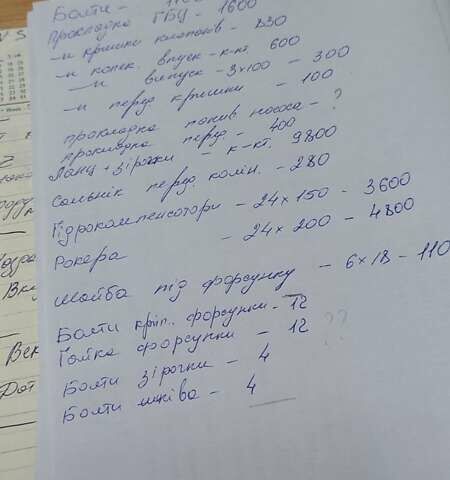 Болти -
прокладка ГБЦ - 1600
-и кришки клапанів - 830
-и колек. впуск - к-кт 600
-и випуск - 3×100 - 300
-и перед кришки - 100
прокладка палив насоса - ?
прокладка перед - 400
Ланц + зірочки - к-кт. 9800
Сальнік перед. колін. - 280
Гідрокомпенсатори - 24×150 - 3600
Рокера - 24×200 - 4800
Шайба під форсунку - 6×18 - 110
Болти кріп. форсунки - 12
Гайка форсунки - 12 ??
Болти зірочки - 4
Болти шківа - 4